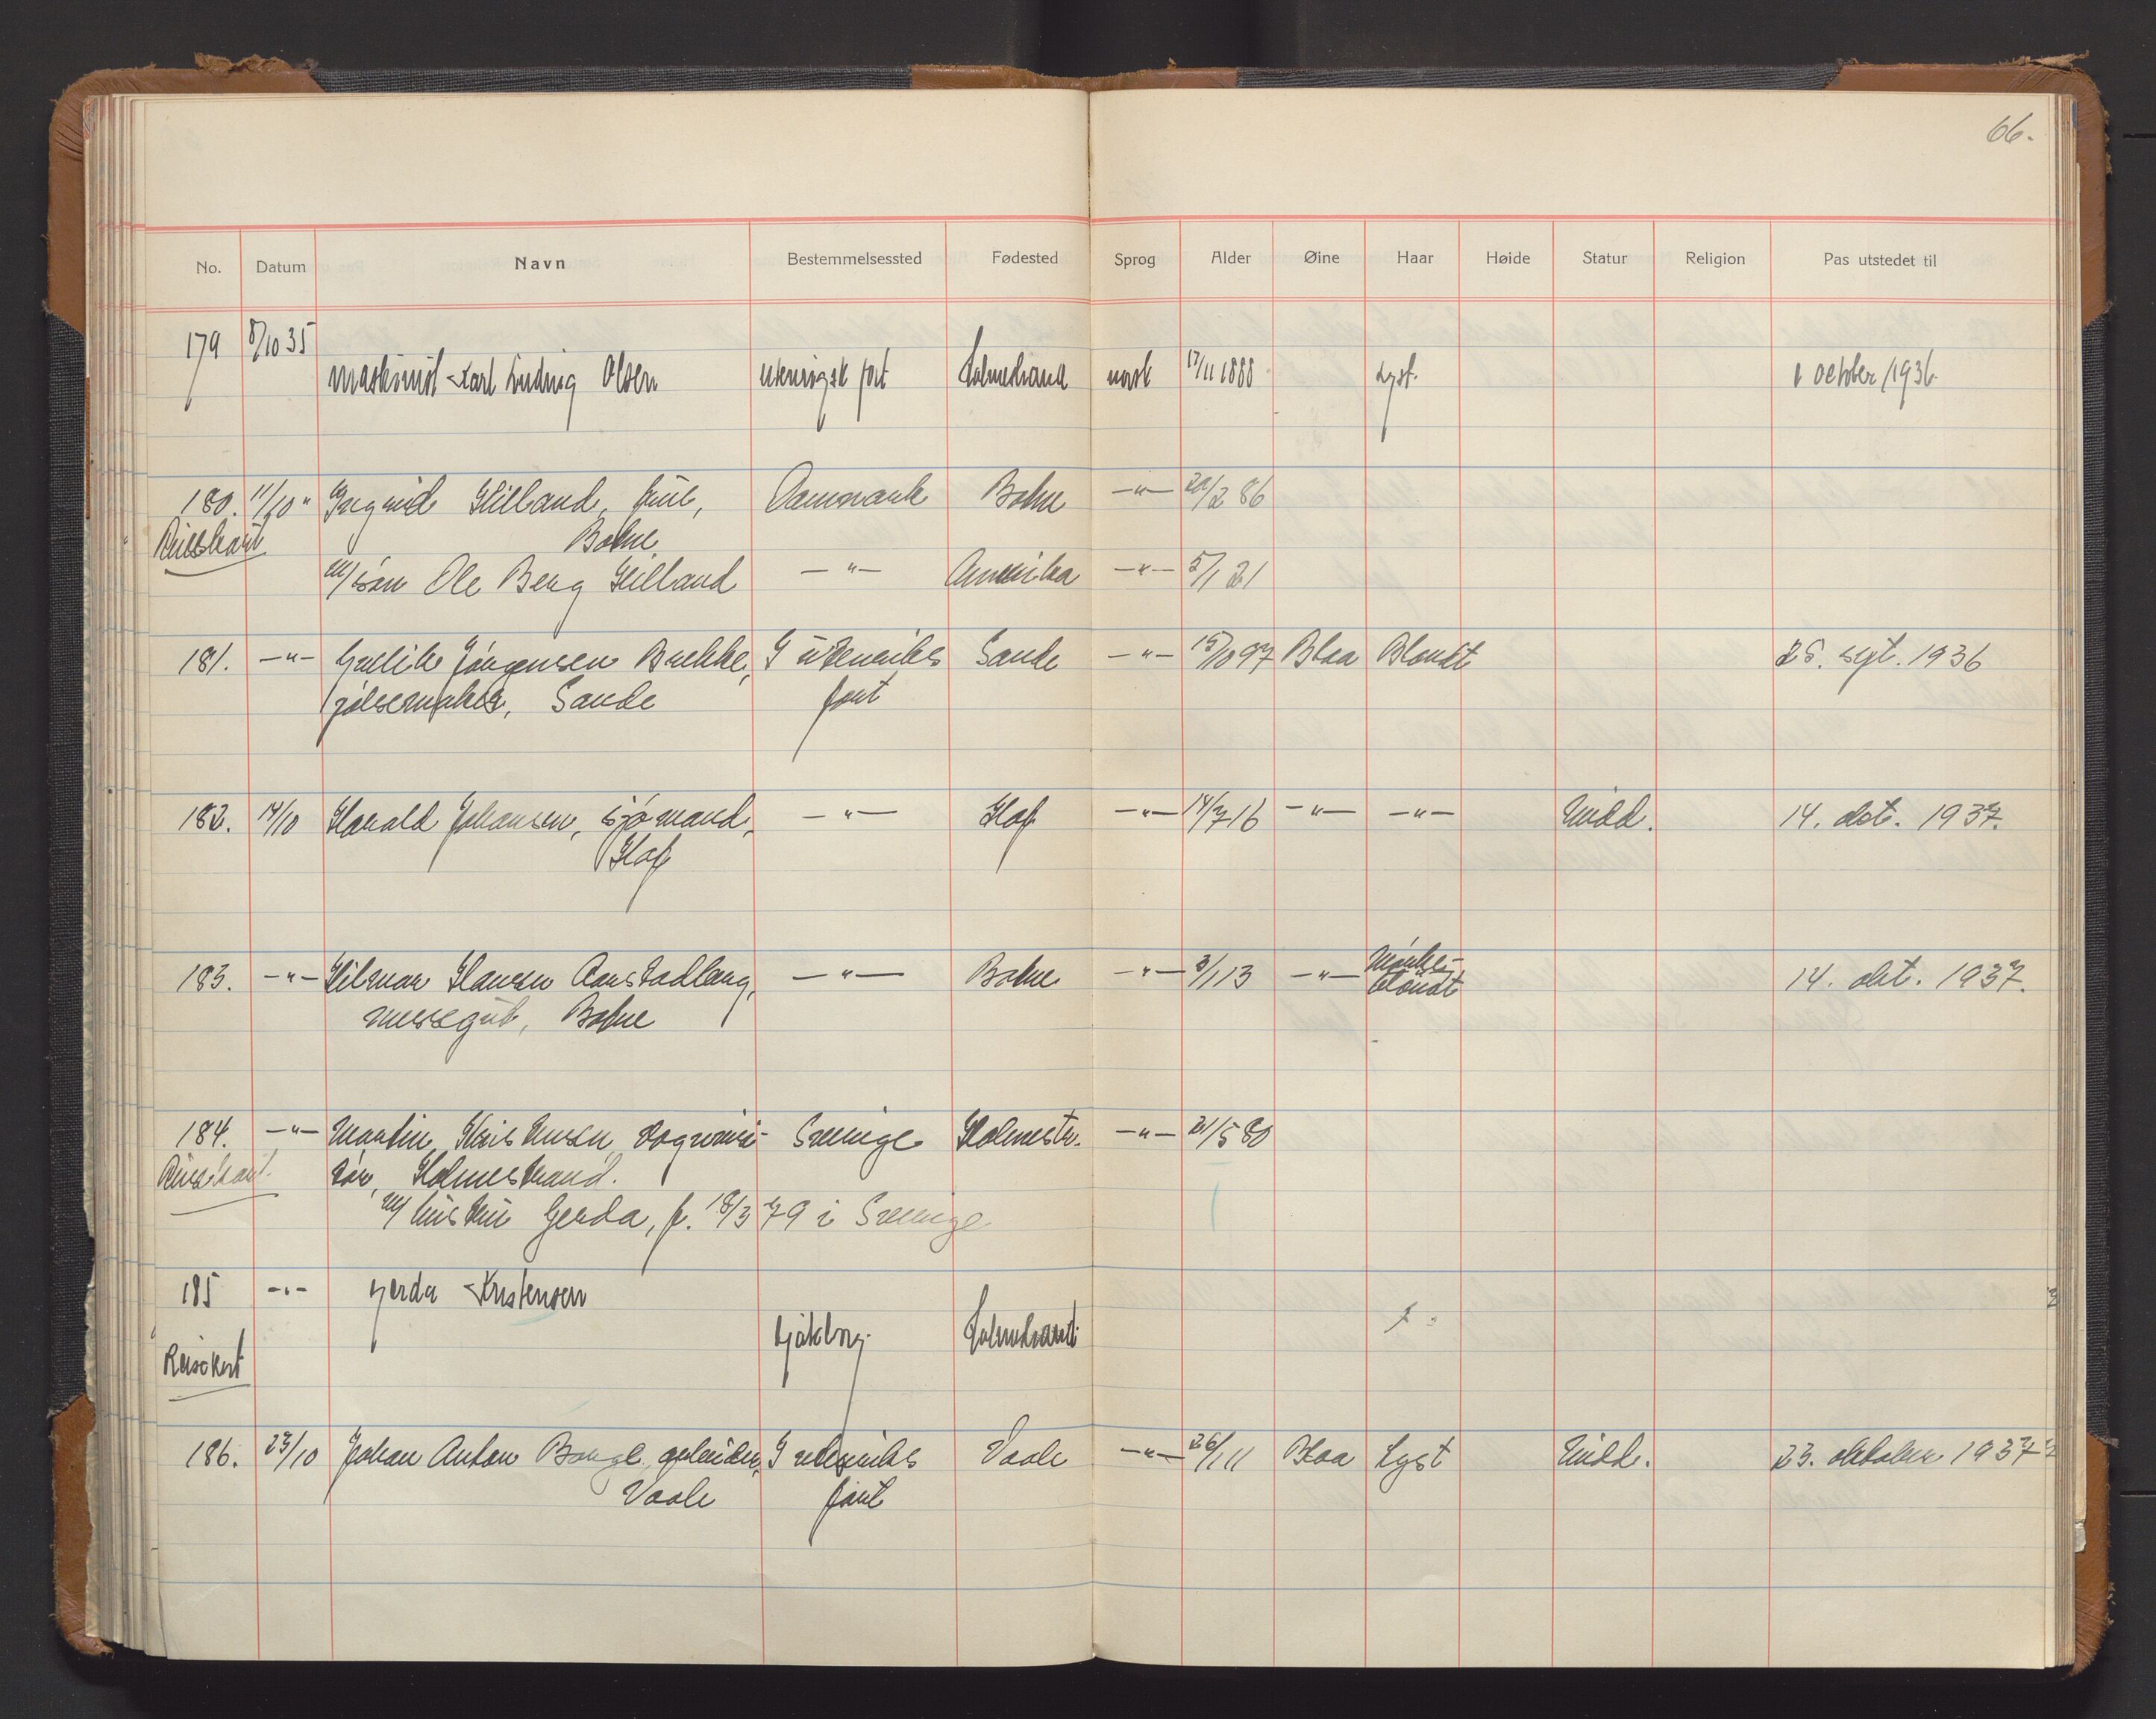 66.
No. Datum Navn Bestemmelsessted Fødested Sprog Alder Øine Haar Høide Statur Religion Pas utstedet til
179 8/10 35
maskinist Karl Ludvig Olsen utenrigsk fart Holmestrand norsk 17/11 1888 Lyst. 1 october 1936.
180. 11/10 " Ingrid Hilland, frue, Danmark Botne —"— 20/2 86
Reisekort Botne
m/søn Ole Berg Hilland —"— Amerika —"— 5/1 21
181. —"— Gullik Jørgensen Brekke, I utenriks Sande —"— 15/10 97 Blaa Blondt 25. sept. 1936
pølsemaker, Sande fart
182. 14/10 Harald Johansen, sjømand, —"— Hof —"— 14/7 16 —"— —"— Midd. 14. okt. 1937.
Hof
183. —"— Hilmar Hansen —"— Botne —"— 3/1 13 —"— Mørke- 14. okt. 1937.
messegut, Botne blondt
184. —"— Martin Kristensen, vognvisi- Sverige Holmestr. —"— 21/5 80
Reisekort. tør, Holmestrand.
m/hustru Gerda, f. 18/3 79 i Sverige
185 —"— Gerda Kristensen
Gøteborg. Holmestrand.
Reisekort
186. 23/10 Johan Anton Borge, arbeider, I utenriks Vaale —"— 26/1 11 Blaa Lyst Midd. 23. oktober 1937
Vaale fart